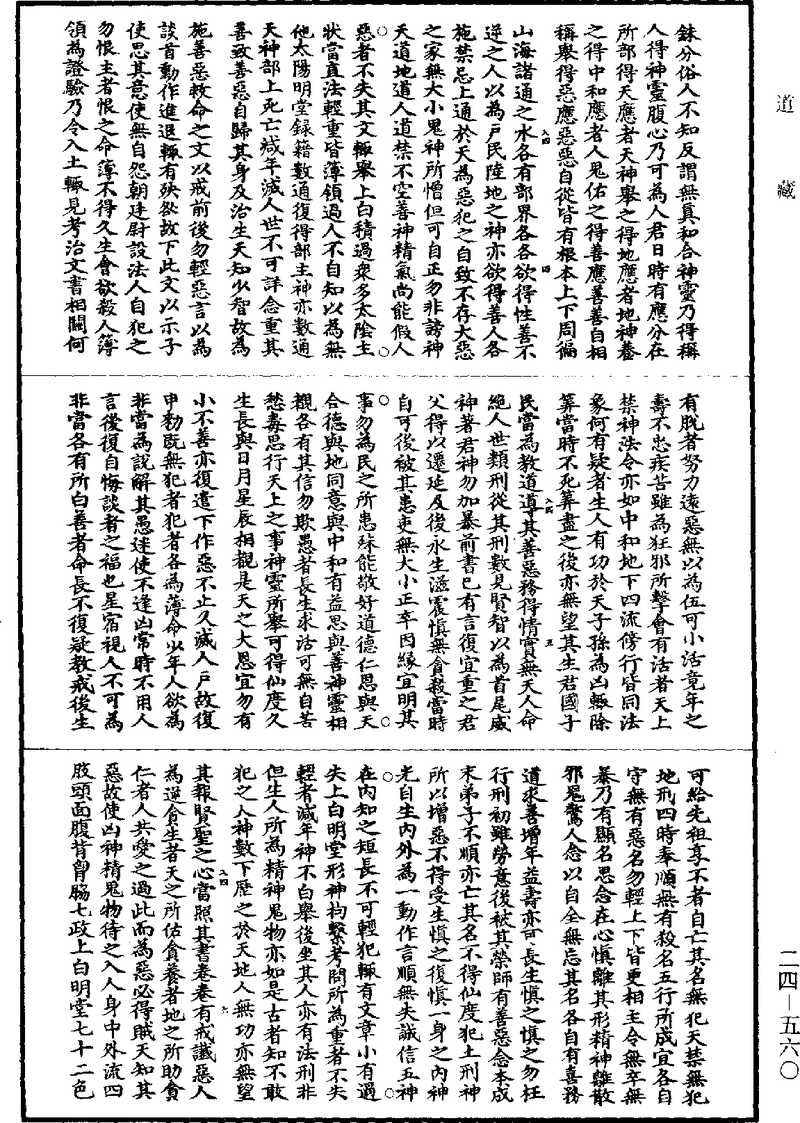 道藏
銖分俗人不知反謂無真和合神靈乃得稱
人得神靈腹心乃可為人君日時有應分在
所部得天應者天神舉之得地應者地神養
之得中和應者人鬼佑之得善應善善自相
稱舉得惡應惡惡自從皆有根本上下周徧
山海諸通之水各有部界各各欲得性善不
逆之人以為戶民陸地之神亦欲得善人各
施禁忌上通於天為惡犯之自致不存大惡
之家無大小鬼神所憎但可自正勿非謗神
天道地道人道禁不空善神精氣尚能假人
惡者不失其文輒舉上白積過衆多太陰主
狀當直法輕重皆簿領過人不自知以為無
他太陽明堂録籍數通復得部主神亦數通
天神部上死亡減年滅人世不可詳念重其
善致善惡自歸其身及治生天知少智故為
施善惡救命之文以戒前後勿輕惡言以為
談首動作進退輒有殃欲故下此文以示子
使思其意使無自怨朝廷尉設法人自犯之
勿恨主者恨之命薄不得久生會欲殺人簿
領為證驗乃令入土輒見考治文書相關何
有脫者努力遠惡無以為伍可小活竟年之
壽不忠疾苦雖為狂邪所擊會有活者天上
禁神法令亦如中和地下四流傍行皆同法
象何有疑者生人有功於天子孫為凶輒除
筭當時不死筭盡之後亦無望其生君國子
民當為教道導其善惡務得情實無天人命
絕人世類刑從其刑數見賢智以為首尾威
神著君神勿加暴前書已有言復宜重之君
父得以遷延及後永生滋震慎無貪殺當時
自可後被其患吏無大小正卒因緣宜明其
事勿為民之所患殊能敬好道德仁思與天
合德與地同意與中和有益思與善神靈相
觀各有其信勿欺愚者長生求活可無自苦
愁毒思行天上之事神靈所舉可得仙度久
生長與日月星辰相觀是天之大恩宜勿有
小不善亦復遣下作惡不止久滅人戶故復
申勑既無犯者犯者各為薄命少年人欲為
非當為説解其愚迷使不逢凶常時不用人
言後復自悔談者之福也星宿視人不可為
非當各有所白善者命長不復疑教戒後生
可給先祖享不者自亡其名無犯天禁無犯
地刑四時奉順無有殺名五行所成宜各自
守無有惡名勿輕上下皆更相主令無卒無
暴乃有顯名思念在心慎離其形精神離散
邪鬼驚人念以自全無忘其名各自有喜務
道求善增年益壽亦可長生慎之慎之勿枉
行刑初雖勞意後被其榮師有善惡念本成
末弟子不順亦亡其名不得仙度犯土刑神
所以增惡不得受生慎之復慎一身之內神
光自生內外為一動作言順無失誠信五神
在內知之短長不可輕犯輒有文章小有過
失上白明堂形神拘繫考問所為重者不失
輕者減年神不白舉後坐其人亦有法刑非
但生人所為精神鬼物亦如是古者知不敢
犯之人神數下歷之於天地人無功亦無望
其報賢聖之心當照其書卷卷有戒讖惡人
為逆貪生者天之所佑貪養者地之所助貪
仁者人共愛之過此而為惡必得賊天知其
惡故使凶神精鬼物待之入人身中外流四
肢頭面腹背胷腸七政上白明堂七十二色
二四—五六〇